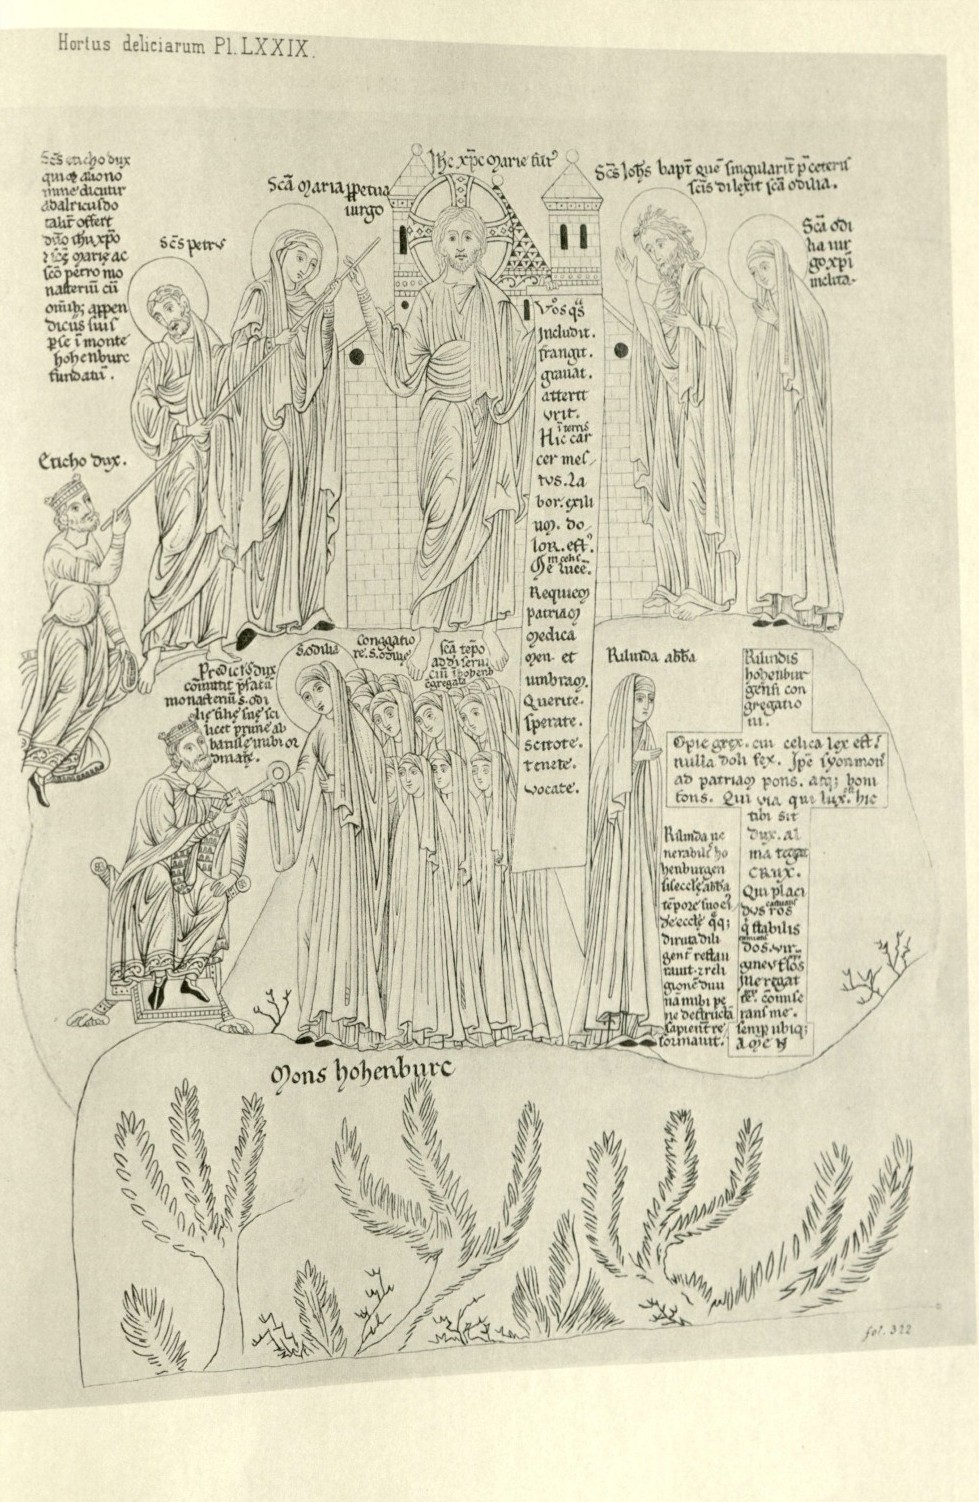 Hortus deliciarum Pl. LXXIX.
Sc̄s eticho dux
qui et alio no
mine dicitur
adalricus do
tal̄r offert
dn̄o ihu xp̄o
Mariȩ ac
sc̄o petro mo
nasteriū cū
om̄ib; appen
diciis suis
ī monte
hohenburc
fundatū.
Sc̄s petrvs
Sc̄a Maria ꝑpetua
uirgo
Ihc xp̄c Marie filī
Sc̄s Ioh̄s bapt̄ quē singularit̄ p̄ ceteris
sc̄is dilexit sc̄a odilia.
Sc̄a odi
lia uir
go xp̄i
inclita.
Eticho dux.
Vos q̄s
Includit.
frangit.
grauat.
atterit
vrit.
Hic car
ī terris
cer mes
tvs. la
bor. exili
um. do
lor. est.
Me luce.
Requiem
patriam
medica
men et
umbram.
Querite.
sperate.
scitote.
tenete.
vocate.
Predict̄s dux
com̄ittit p̄fatū
monasteriū s. odi
liȩ filiȩ suȩ sci
licet primȩ ab
batissȩ inibi or
dinatȩ.
S. odilia
Cong̅gatio
s. odiliȩ
sc̄a tēpo
cū ī hohenb
Rilinda abb̄a
Rilindis
hohenbur
gensi con
gregatio
ni.
O pie grex. cui celica lex est.
nulla doli fex. Ipse syon mons
ad patriam pons. atq; boni
fons. Qui via qui lux. hic
tibi sit
dux. al
ma tegat
crux.
Qui placi
dus ros
q̄ stabilis
dos. vir
gineus flos
Ille regat
te. cōmise
rans me.
semp̄ ubiq;
amen
Rilinda ue
nerabilis ho
henburgen
sis ecclȩ abb̄a
tēpore suo ei
dē ecclȩ q̄q;
diruta dili
gent̄ restau
rauit. ⁊ reli
gionē diui
nā inibi pe
ne destructā
sapient̄ re
formauit.
Mons hohenburc
fol. 322